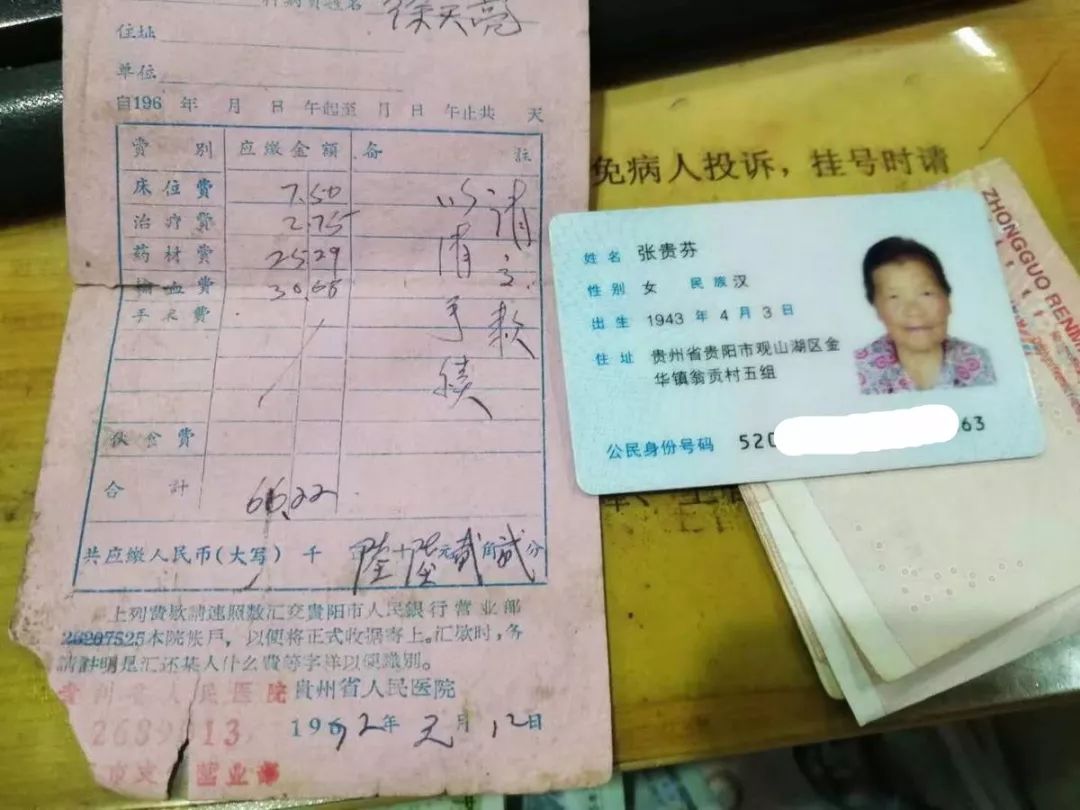 科病员姓名 徐天亮
住址
单位
自196 年 月 日 午起至 月 日 午止共 天
費別 应缴金额 备註
床位費 7.50
治疗費 2.75
药材費 25.29
输血費 30.68
手术費
伙食費
合計 66.22
请主款
以清手续
共应缴人民币(大写) 千 陆十陆元贰角贰分
上列費欵請速照数汇交貴阳市人民銀行营业部
26207525本院帐戶，以便将正式收据寄上。汇欵时，务
請註明是汇还某人什么費等字样以便識别。
貴州省人民医院
1962年元月12日
貴州省人民医院
2689013
市支 营业部
免病人投诉，挂号时请
姓名 张贵芬
性别 女 民族 汉
出生 1943 年 4 月 3 日
住址 贵州省贵阳市观山湖区金
华镇翁贡村五组
公民身份号码 520 63
ZHONGGUO RENM